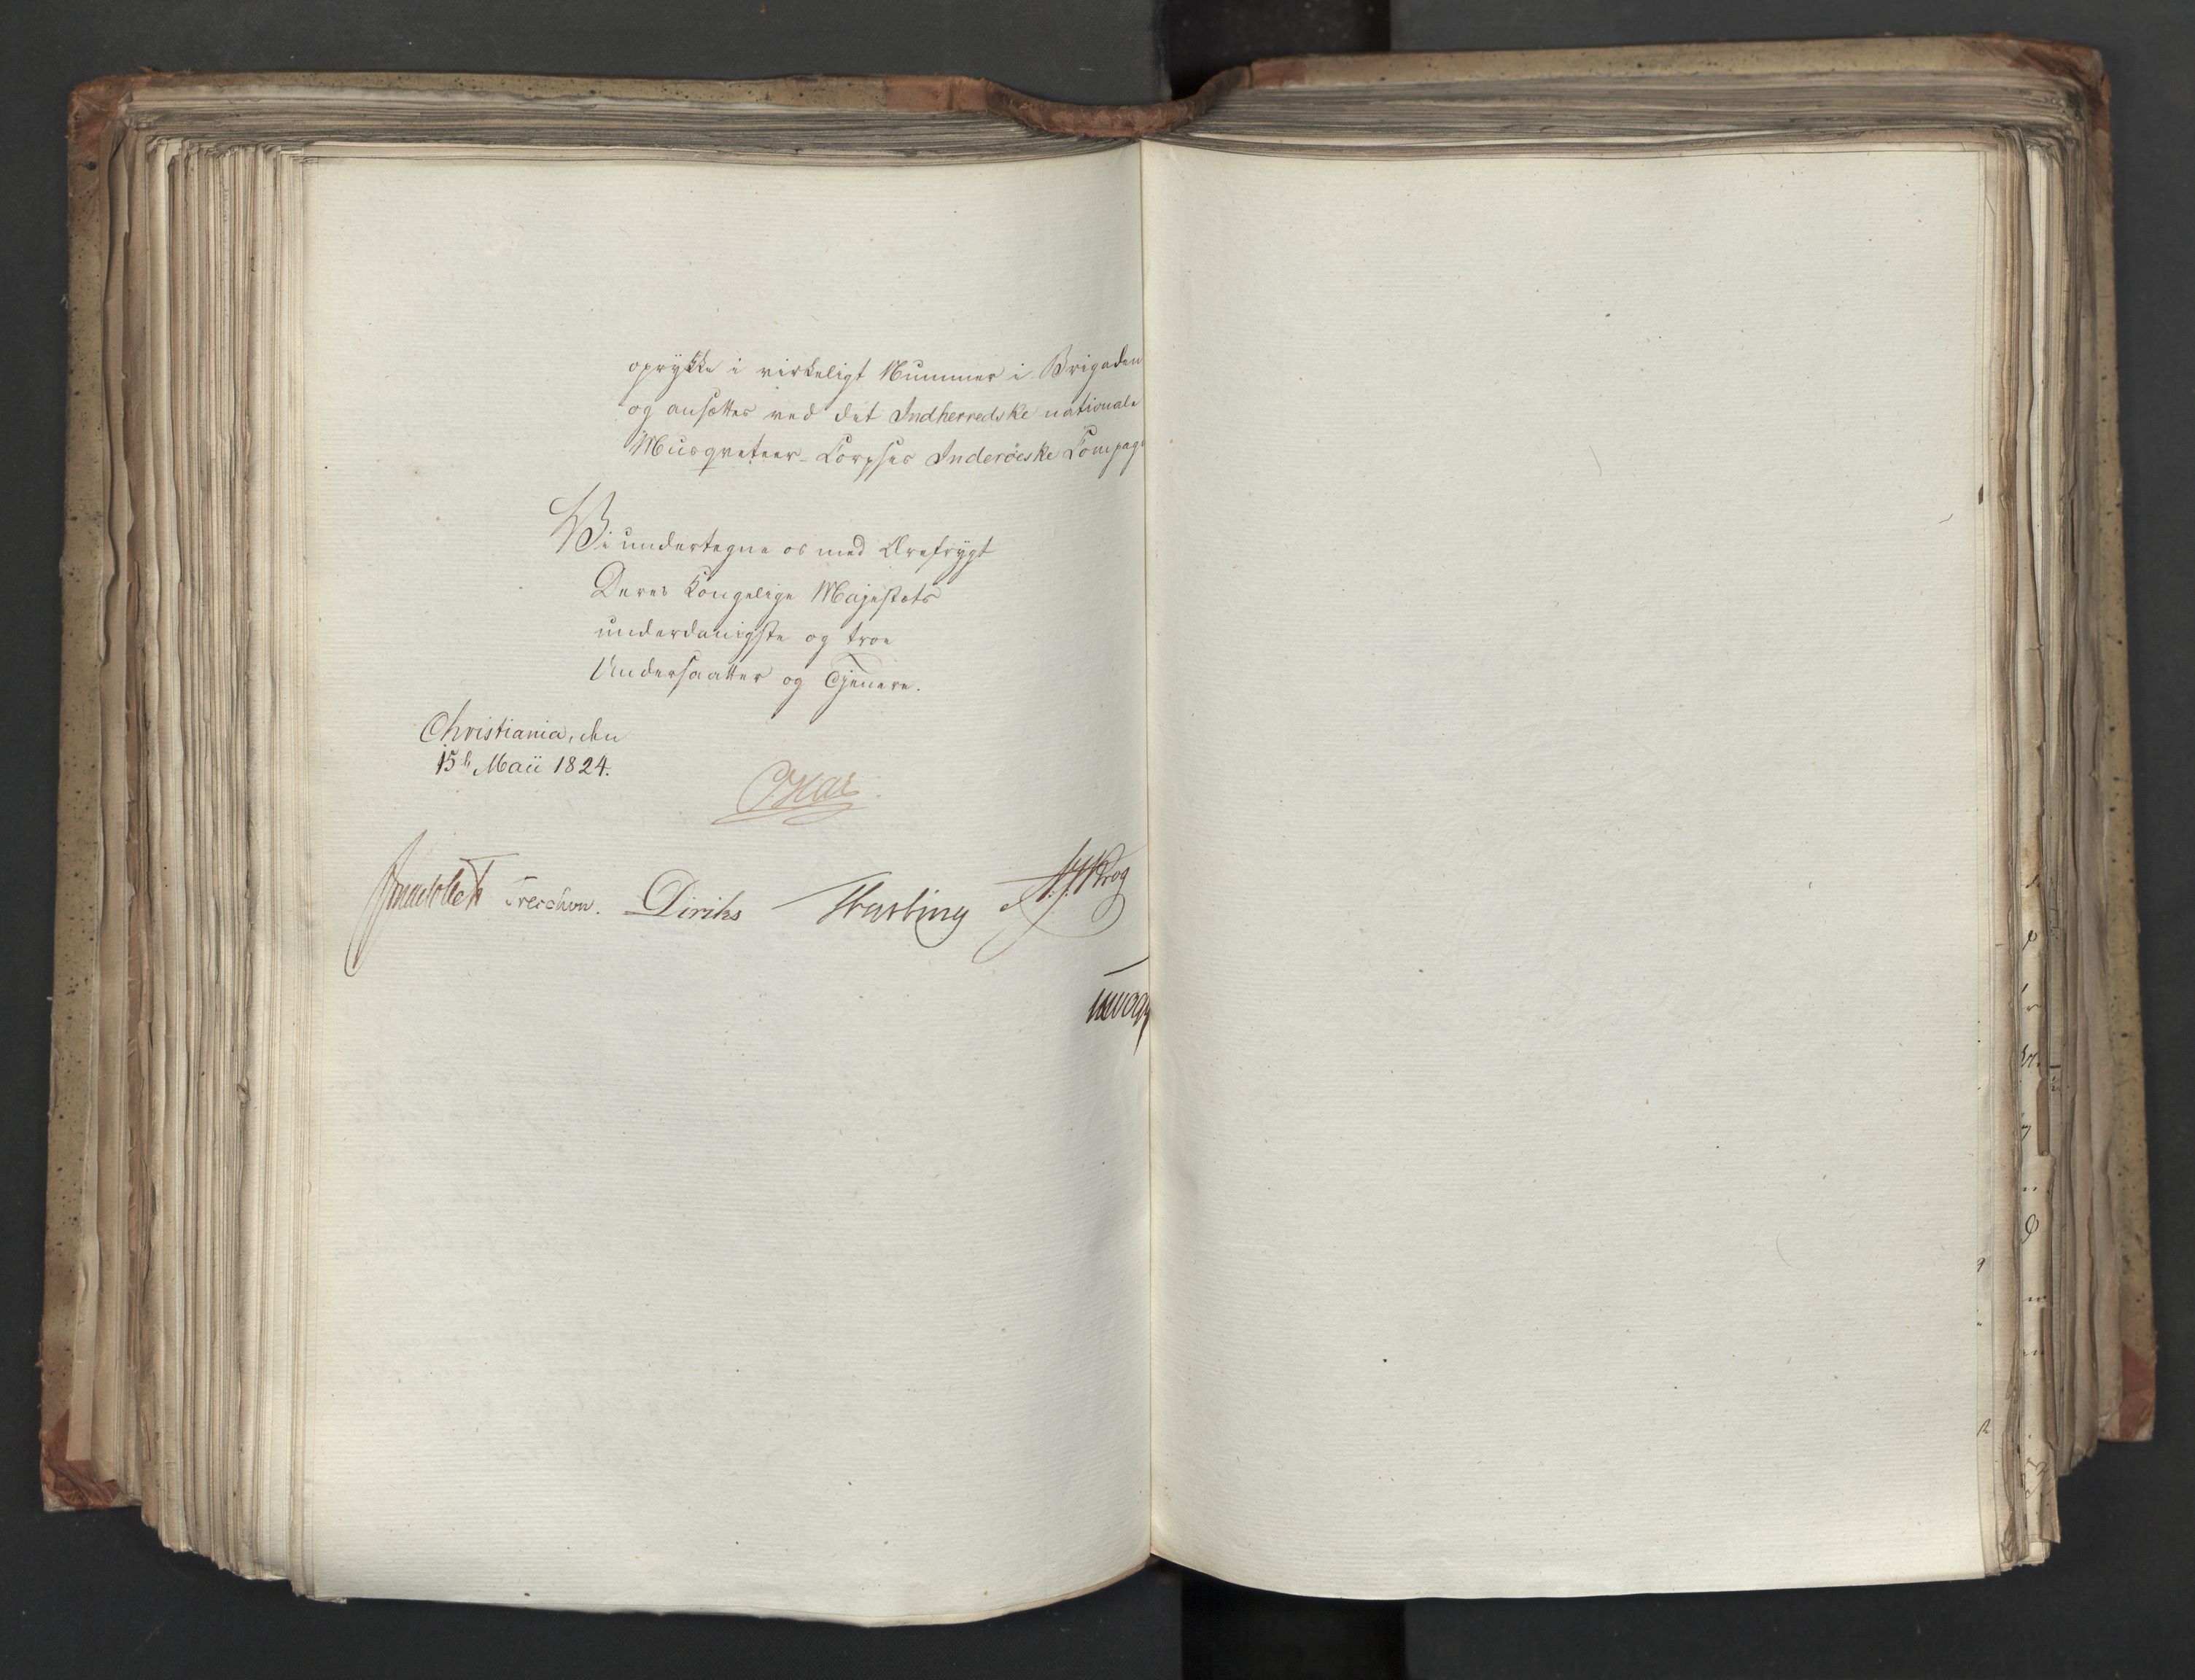 oprykke i virkeligt Nummer i Brigaden
og ansættes ved det Indherredske nationale
Musqveteer-Corpses Inderöeske Compag
Vi undertegne os med Ærefrygt
Deres Kongelige Majestæts
underdanigste og troe
Undersaatter og Tjenere.
Christiania, den
15de Maii 1824.
Oskar.
Treschow. Diriks Fasting H. Krog